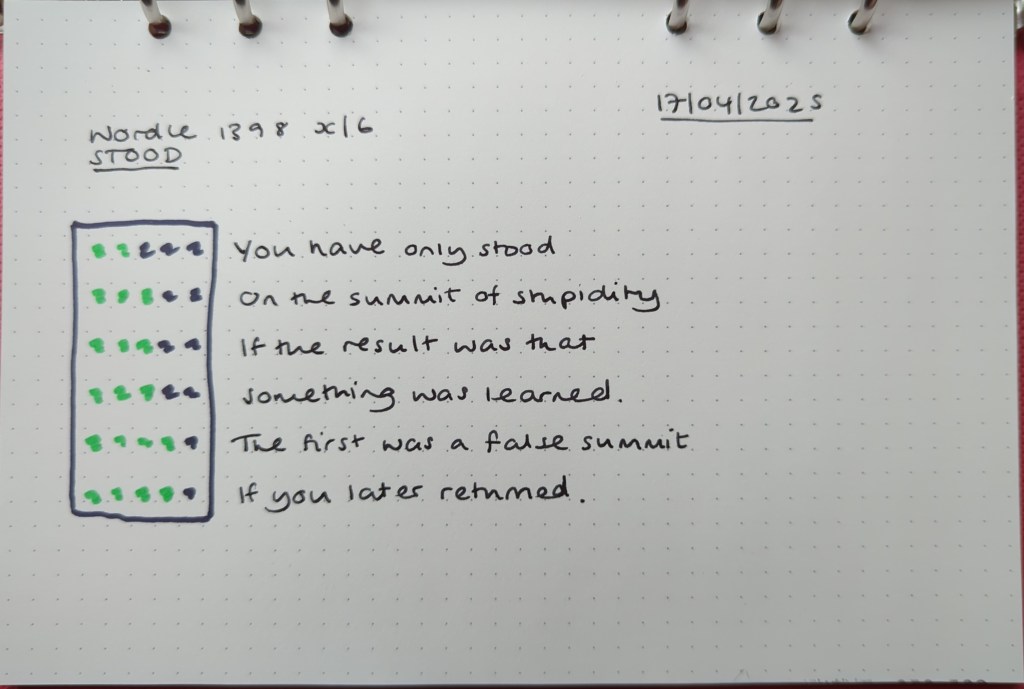 17/04/2025
Wordle 1398 x/6
STOOD
You have only stood
On the summit of stupidity
If the result was that
something was learned.
The first was a false summit
If you later returned.